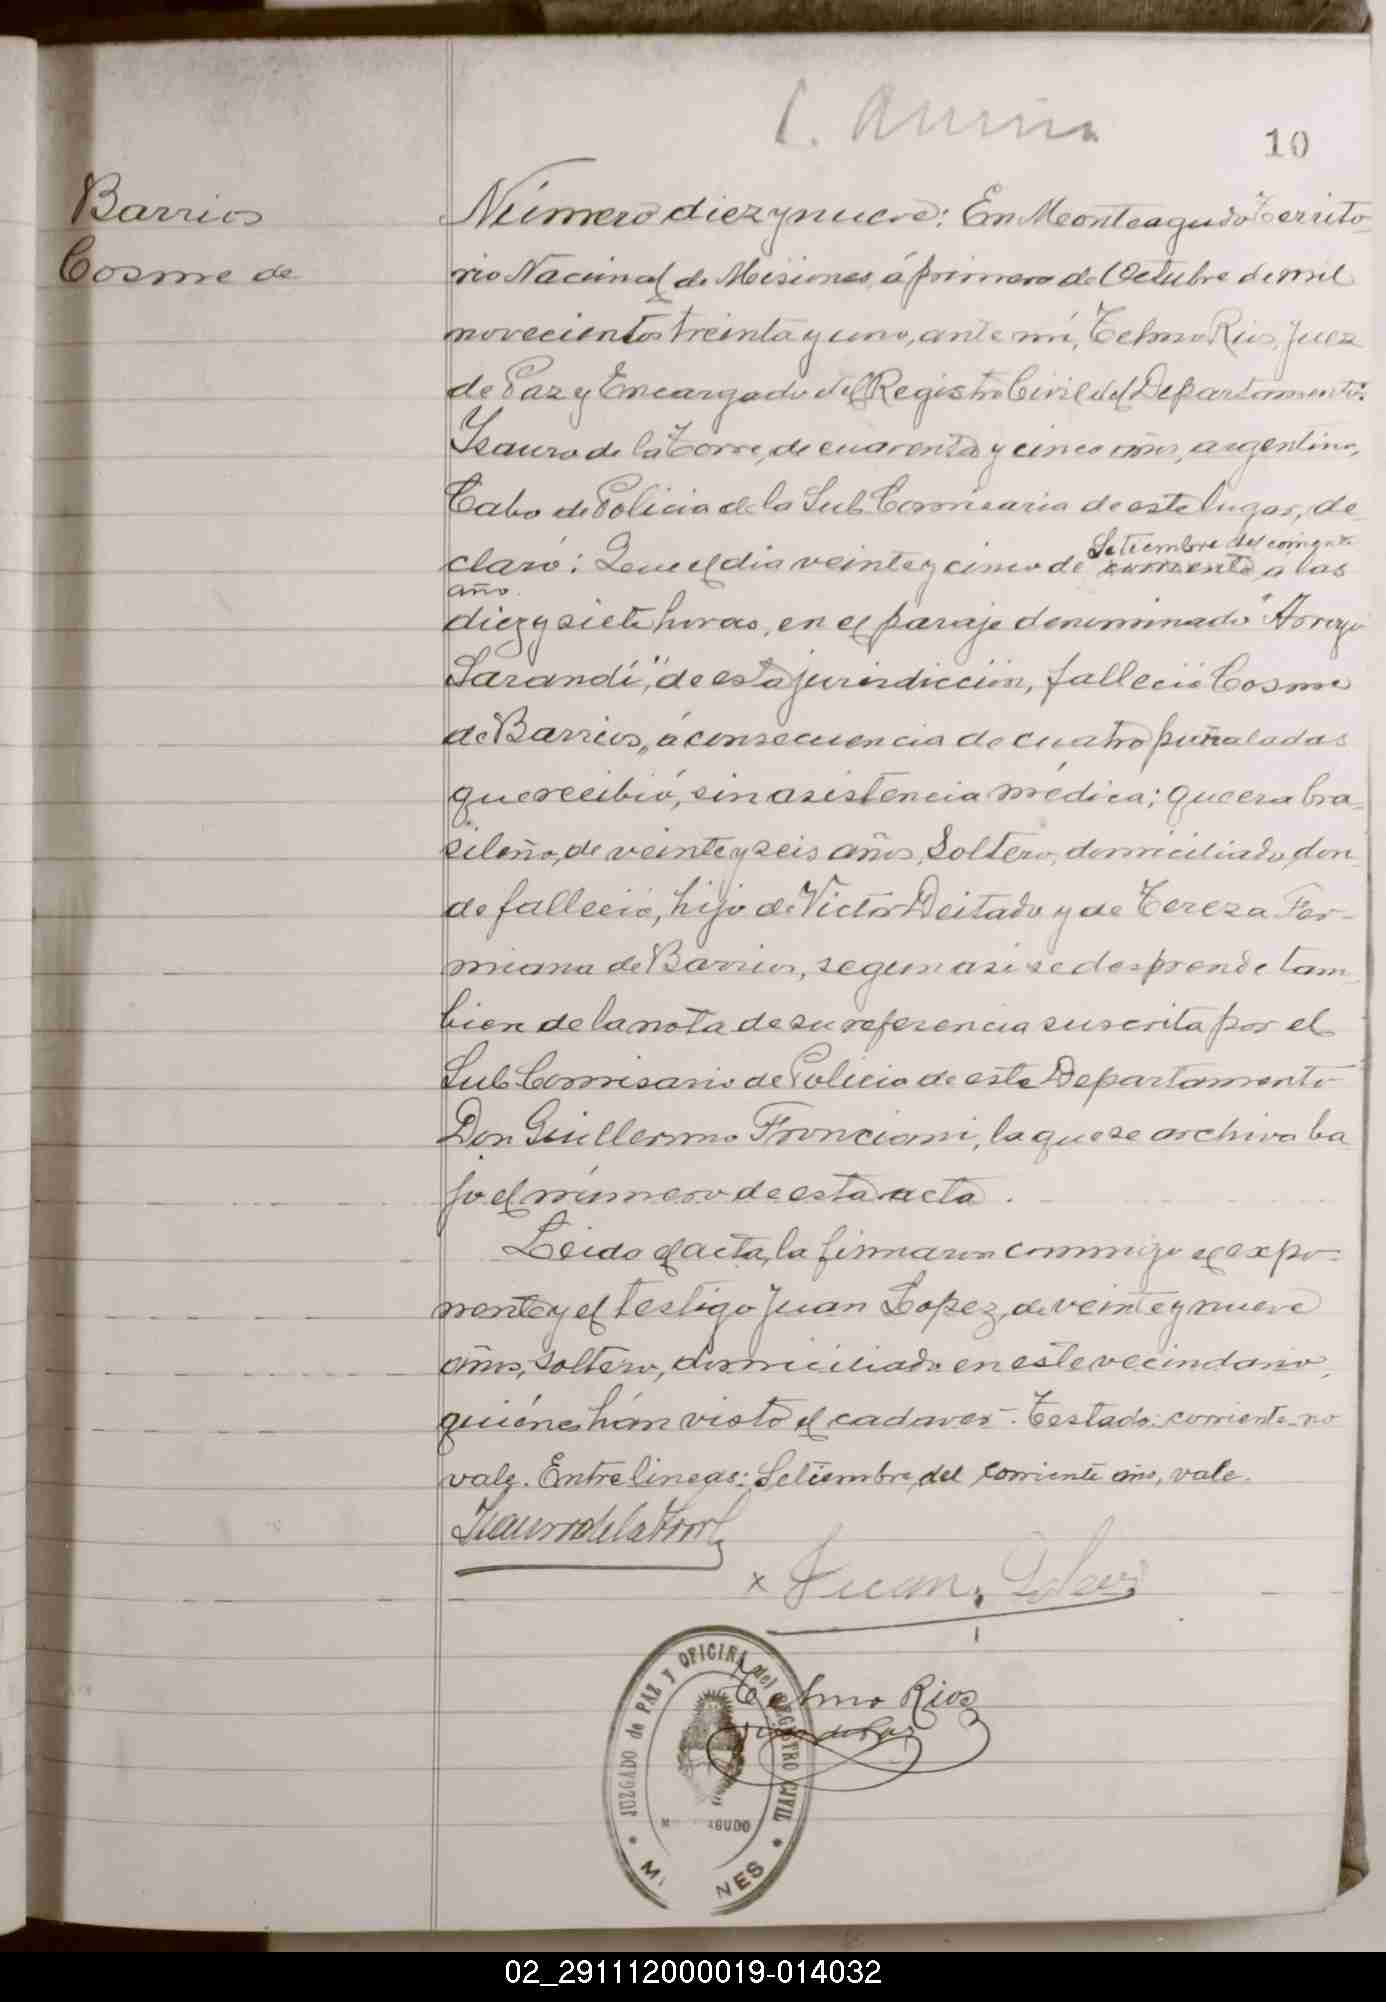 10
Barrios
Cosme de
Número diez y nueve: En Monteagudo Territo-
rio Nacional de Misiones, á primero de Octubre de mil
novecientos treinta y uno, ante mí, Telmo Rios, Juez
de Paz y Encargado del Registro Civil del Departamento:
Isauro de la Torre, de cuarenta y cinco años, argentino,
Cabo de Policia de la Sub Comisaria de este lugar, de-
claró: Que el dia veinte y cinco de corriente a las
Setiembre del corriente
año.
diez y siete horas, en el paraje denominado "Arroyo
Sarandí", de esta jurisdicción, falleció Cosme
de Barrios, á consecuencia de cuatro puñaladas
que recibió, sin asistencia médica; que era bra-
sileño, de veinte y seis años, Soltero, domiciliado don-
de falleció, hijo de Victor Deitado y de Tereza Fer-
miana de Barrios, segun asi se desprende tam-
bien de la nota de su referencia suscrita por el
Sub Comisario de Policia de este Departamento
Don Guillermo Fronciani, la que se archiva ba
jo el número de esta acta.
Leida el acta, la firmaron conmigo el expo-
nente y el testigo Juan Lopez, de veinte y nueve
años, soltero, domiciliado en este vecindario,
quiénes hán visto el cadaver. Testado: corriente-no
vale. Entrelineas: Setiembre, del corriente año, vale.
Isauro de la Torre
x Juan
Telmo Rios
Juez de Paz
JUZGADO de PAZ Y OFICINA del REGISTRO CIVIL
M AGUDO
MI NES
02_291112000019-014032